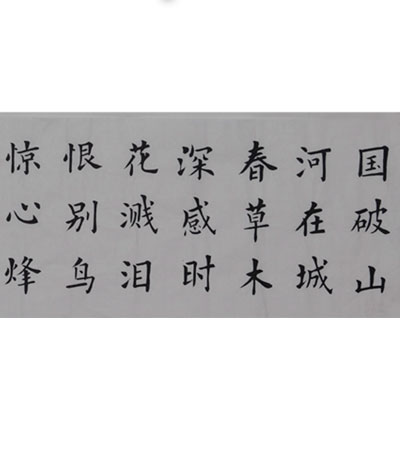 国破山
河在城
春草木
深感时
花溅泪
恨别鸟
惊心烽